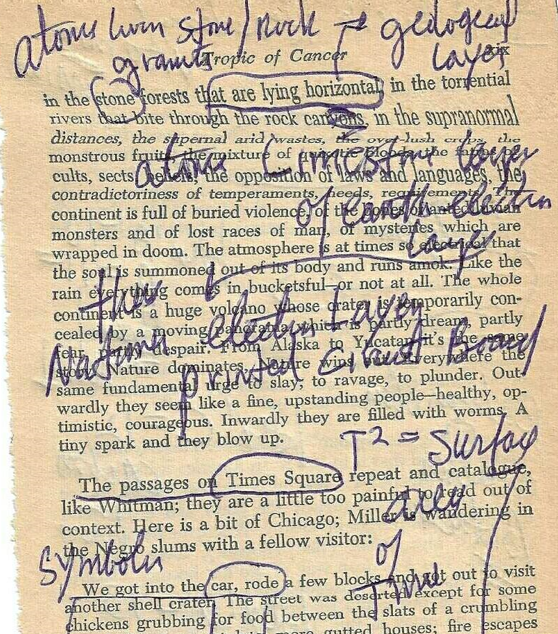 atoms stone/rock → geological
granite Tropic of Cancer layer xix
in the stone forests that are lying horizontal, in the torrential
rivers that bite through the rock canyons, in the supranormal
distances, the supernal arid wastes, the over-lush crops, the
monstrous fruits, the mixture of
cults, sects, the opposition of laws and languages, the
contradictoriness of temperaments, needs, requirements. The
continent is full of buried violence, of the bones of
monsters and of lost races of man, of mysteries which are
wrapped in doom. The atmosphere is at times so that
the soul is summoned out of its body and runs amok. Like the
rain everything comes in bucketsful or not at all. The whole
continent is a huge volcano whose crater is temporarily con-
cealed by a moving that is partly dream, partly
fear, despair. From Alaska to Yucatan it's the same
story. Nature dominates. Nature wins out. Everywhere the
same fundamental urge to slay, to ravage, to plunder. Out
wardly they seem like a fine, upstanding people—healthy, op-
timistic, courageous. Inwardly they are filled with worms. A
tiny spark and they blow up.
limestone layer
of earth electron
layer
How
Nature electron Layer
printed Circuit Board
T² = Surface
area
of
time
The passages on Times Square repeat and catalogue,
like Whitman; they are a little too painful to read out of
context. Here is a bit of Chicago; Miller is wandering in
the Negro slums with a fellow visitor:
Symbols
We got into the car, rode a few blocks and got out to visit
another shell crater. The street was deserted except for some
chickens grubbing for food between the slats of a crumbling
more gutted houses; fire escapes